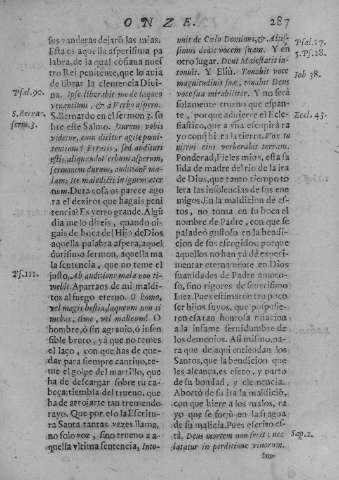 ONZE. 287
sus vanderas dejarà las mias.
Esta es aquella asperissima pa
labra, de la qual cõfiaua nuestro
Rei penitente, que lo auia
de librar la clemencia Diuina.
Psal. 90. Ipse liberabit me de laqueo
venantium, & à verbo aspero.
S. Berna. S. Bernardo en el sermon 3. so
serm. 3. bre este Salmo. Durum vobis
videtur, cum dicitur agite pœnitentiam?
Erratis, sed audituri
estis, aliquando verbum asperum,
sermonem durum, auditum malum:
Ite maledicti in ignem æternum.
Dura cosa os parece ago
ra el deziros que hagais penitencia?
Es yerro grande. Algũ
dia me lo direis, quando oigais
de boca del Hijo de Dios
aquella palabra aspera, aquel
durissimo sermon, aquella ma
la sentencia, que no teme el
Psf. 111. justo, Ab auditione mala non timebit.
Apartaos de mi malditos
al fuego eterno. O homo,
vel magis bestia, saquerem non ti
mebas, time, vel malleum! O
hombre, ò sin agrauio, ò insensible
bruto, ya que no temes
el laço, con que has de quedar
para siempre cautiuo, teme
el golpe del martillo, que
ha de descargar sobre tu cabeça:
tiembla del trueno, que
ha de arrojarte tan tremendo
rayo. Que por ello la Escritura
Santa tantas vezes llama,
no solo voz, sino trueno à aquella
vltima sentencia, Into-
nuit de Cœlo Dominus, & Altis- Psal. 17.
simus dedit vocem suam. Y en 3. Ps. 28.
otro lugar. Deus Maiestatis intonuit.
Y Eliù. Tonabit voce Iob 38.
magnitudinis suæ, tonabit Deus
voce sua mirabiliter. Y no serà
solamente trueno que espante,
porque aduierte el Ecle- Eccl. 43.
siastico, que à vna escupirà ra
yo con hiera la tierra. Vox to
nitrui eius verberabit terram.
Ponderad, Fieles mios, esta salida
de madre del rio de la ira
de Dios, que tanto tiempo to
lera las insolencias de sus enemigos.
En la maldicion de estos,
no toma en la boca el
nombre de Padre, con que se
paladeò gustoso en la bendicion
de sus escogidos; porque
aquellos no han yà de experi
mentar eternamente en Dios
suauidades de Padre amoroso,
sino rigores de seuerissimo
Iuez. Pues estimaron tra poco
ser hijos suyos, que pospusieron
esta tan honrosa filiacion
à la infame seruidumbre de
los demonios. Assi mismo, para
que aqui entiendan los
Santos, que la bendicion que
les alcança, es efeto, y parto
de su bondad, y clemencia.
Abortò de su ira la maldicion,
con que hiere à los malos, ra
yo que se forjò en la fragua
de su malicia. Pues escrito està,
Deus mortem non fecit; nec Sap. 2.
lætatur in perditione viuorum.